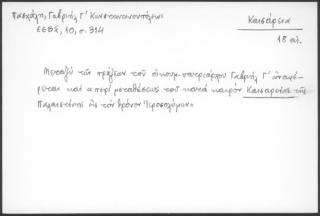 Πασχάλη, Γαβριήλ Γ' Κωνσταντινουπόλεως
ΕΕΒΣ, 10, σ. 314
Καισάρεια
18 αι.
Μεταξύ τῶν πράξεων τοῦ οἰκουμ. πατριάρχου Γαβριήλ Γ' ἀναφέ-
ρεται καί "περί μεταθέσεως τοῦ κατά καιρόν Καισαρείας τῆς
Παλαιστίνης εἰς τόν θρόνον Ἱεροσολύμων"